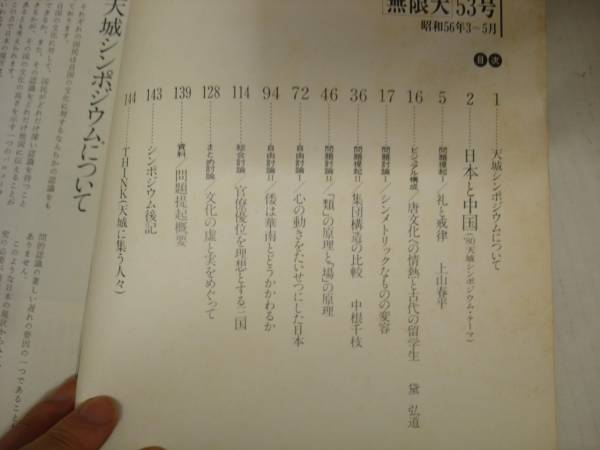 無限大 53号
昭和56年3〜5月
目次
1 ……… 天城シンポジウムについて
2 ……… 日本と中国('80天城シンポジウム・テーマ)
5 ……… 問題提起I/礼と戒律 上山春平
16 ……… ビジュアル構成/唐文化への情熱と古代の留学生 黛 弘道
17 ……… 問題討論I/シンメトリックなものの変容
36 ……… 問題提起II/集団構造の比較 中根千枝
46 ……… 問題討論II/「類」の原理と「場」の原理
72 ……… 自由討論I/心の動きをたいせつにした日本
94 ……… 自由討論II/倭は華南とどうかかわるか
114 ……… 総合討論/官僚優位を理想とする二国
128 ……… まとめ討論/文化の虚と実をめぐって
139 ……… 資料/問題提起概要
143 ……… シンポジウム後記
144 ……… THINK(天城に集う人々)
天城シンポジウムについて
それぞれの国民は自国の文化に対するなんらかの認識をも
っております。